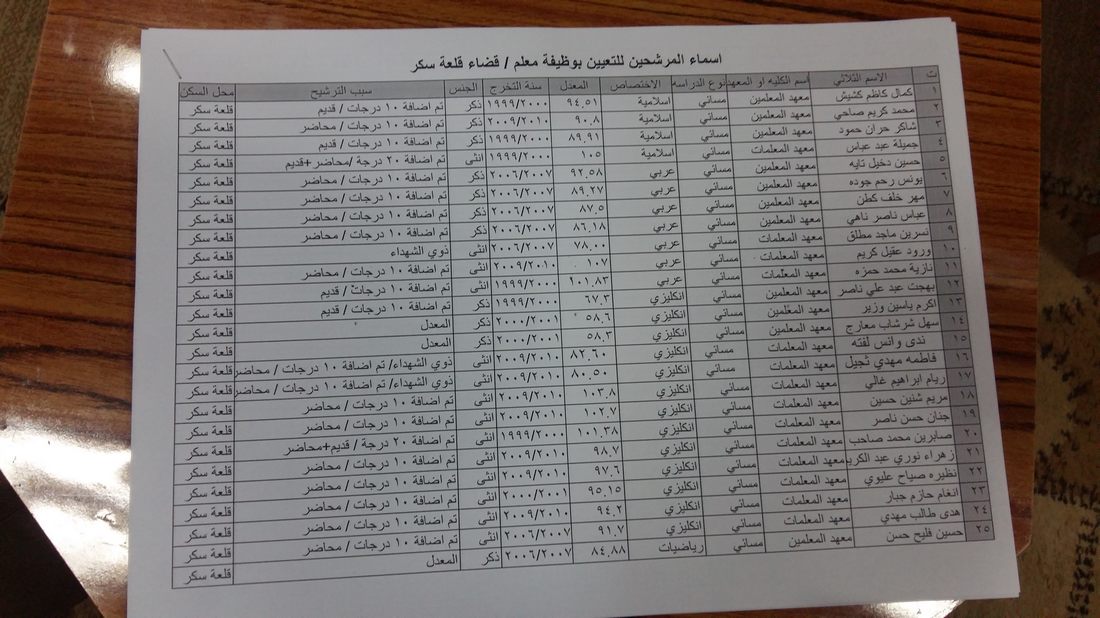 اسماء المرشحين للتعيين بوظيفة معلم / قضاء قلعة سكر
ت الاسم الثلاثي اسم الكليه او المعهد نوع الدراسه الاختصاص المعدل سنة التخرج الجنس سبب الترشيح محل السكن
١ كمال كاظم كشيش معهد المعلمين مسائي اسلامية ٩٤.٥١ ١٩٩٩/٢٠٠٠ ذكر تم اضافة ١٠ درجات / قديم قلعة سكر
٢ محمد كريم صاحي معهد المعلمين مسائي اسلامية ٩٠.٨ ٢٠٠٩/٢٠١٠ ذكر تم اضافة ١٠ درجات / محاضر قلعة سكر
٣ شاكر حران حمود معهد المعلمين مسائي اسلامية ٨٩.٩١ ١٩٩٩/٢٠٠٠ ذكر تم اضافة ١٠ درجات / قديم قلعة سكر
٤ جميلة عبد عباس معهد المعلمات مسائي اسلامية ١٠٥ ١٩٩٩/٢٠٠٠ انثى تم اضافة ٢٠ درجة /محاضر+قديم قلعة سكر
٥ حسين دخيل تايه معهد المعلمين مسائي عربي ٩٢.٥٨ ٢٠٠٦/٢٠٠٧ ذكر تم اضافة ١٠ درجات / محاضر قلعة سكر
٦ يونس رحم جوده معهد المعلمين مسائي عربي ٨٩.٢٧ ٢٠٠٦/٢٠٠٧ ذكر تم اضافة ١٠ درجات / محاضر قلعة سكر
٧ مهر خلف كطن معهد المعلمين مسائي عربي ٨٧.٥ ٢٠٠٦/٢٠٠٧ ذكر تم اضافة ١٠ درجات / محاضر قلعة سكر
٨ عباس ناصر ناهي معهد المعلمين مسائي عربي ٨٦.١٨ ٢٠٠٦/٢٠٠٧ ذكر تم اضافة ١٠ درجات / محاضر قلعة سكر
٩ نسرين ماجد مطلق معهد المعلمات مسائي عربي ٧٨.٠٠ ٢٠٠٦/٢٠٠٧ انثى ذوي الشهداء قلعة سكر
١٠ ورود عقيل كريم معهد المعلمات مسائي عربي ١٠٧ ٢٠٠٩/٢٠١٠ انثى تم اضافة ١٠ درجات / محاضر قلعة سكر
١١ نازية محمد حمزه معهد المعلمات مسائي عربي ١٠١.٨٣ ١٩٩٩/٢٠٠٠ انثى تم اضافة ١٠ درجات / قديم قلعة سكر
١٢ بهجت عبد علي ناصر معهد المعلمين مسائي انكليزي ٦٧.٣ ١٩٩٩/٢٠٠٠ ذكر تم اضافة ١٠ درجات / قديم قلعة سكر
١٣ اكرم ياسين وزير معهد المعلمين مسائي انكليزي ٥٨.٦ ٢٠٠٠/٢٠٠١ ذكر المعدل قلعة سكر
١٤ سهل شرشاب معارج معهد المعلمين مسائي انكليزي ٥٨.٣ ٢٠٠٠/٢٠٠١ ذكر المعدل قلعة سكر
١٥ ندى وانس لفته معهد المعلمات مسائي انكليزي ٨٢.٦٠ ٢٠٠٩/٢٠١٠ انثى ذوي الشهداء/ تم اضافة ١٠ درجات / محاضر قلعة سكر
١٦ فاطمه مهدي ثجيل معهد المعلمات مسائي انكليزي ٨٠.٥٠ ٢٠٠٩/٢٠١٠ انثى ذوي الشهداء/ تم اضافة ١٠ درجات / محاضر قلعة سكر
١٧ ريام ابراهيم غالي معهد المعلمات مسائي انكليزي ١٠٣.٨ ٢٠٠٩/٢٠١٠ انثى تم اضافة ١٠ درجات / محاضر قلعة سكر
١٨ مريم شنين حسين معهد المعلمات مسائي انكليزي ١٠٢.٧ ٢٠٠٩/٢٠١٠ انثى تم اضافة ١٠ درجات / محاضر قلعة سكر
١٩ جنان حسن ناصر معهد المعلمات مسائي انكليزي ١٠١.٣٨ ١٩٩٩/٢٠٠٠ انثى تم اضافة ٢٠ درجة / قديم+محاضر قلعة سكر
٢٠ صابرين محمد صاحب معهد المعلمات مسائي انكليزي ٩٨.٧ ٢٠٠٩/٢٠١٠ انثى تم اضافة ١٠ درجات / محاضر قلعة سكر
٢١ زهراء نوري عبد الكريم معهد المعلمات مسائي انكليزي ٩٧.٦ ٢٠٠٩/٢٠١٠ انثى تم اضافة ١٠ درجات / محاضر قلعة سكر
٢٢ نظيره صباح عليوي معهد المعلمات مسائي انكليزي ٩٥.١٥ ٢٠٠٠/٢٠٠١ انثى تم اضافة ١٠ درجات / محاضر قلعة سكر
٢٣ انغام حازم جبار معهد المعلمات مسائي انكليزي ٩٤.٢ ٢٠٠٩/٢٠١٠ انثى تم اضافة ١٠ درجات / محاضر قلعة سكر
٢٤ هدى طالب مهدي معهد المعلمات مسائي انكليزي ٩١.٧ ٢٠٠٦/٢٠٠٧ انثى تم اضافة ١٠ درجات / محاضر قلعة سكر
٢٥ حسين فليح حسن معهد المعلمين مسائي رياضيات ٨٤.٨٨ ٢٠٠٦/٢٠٠٧ ذكر المعدل قلعة سكر